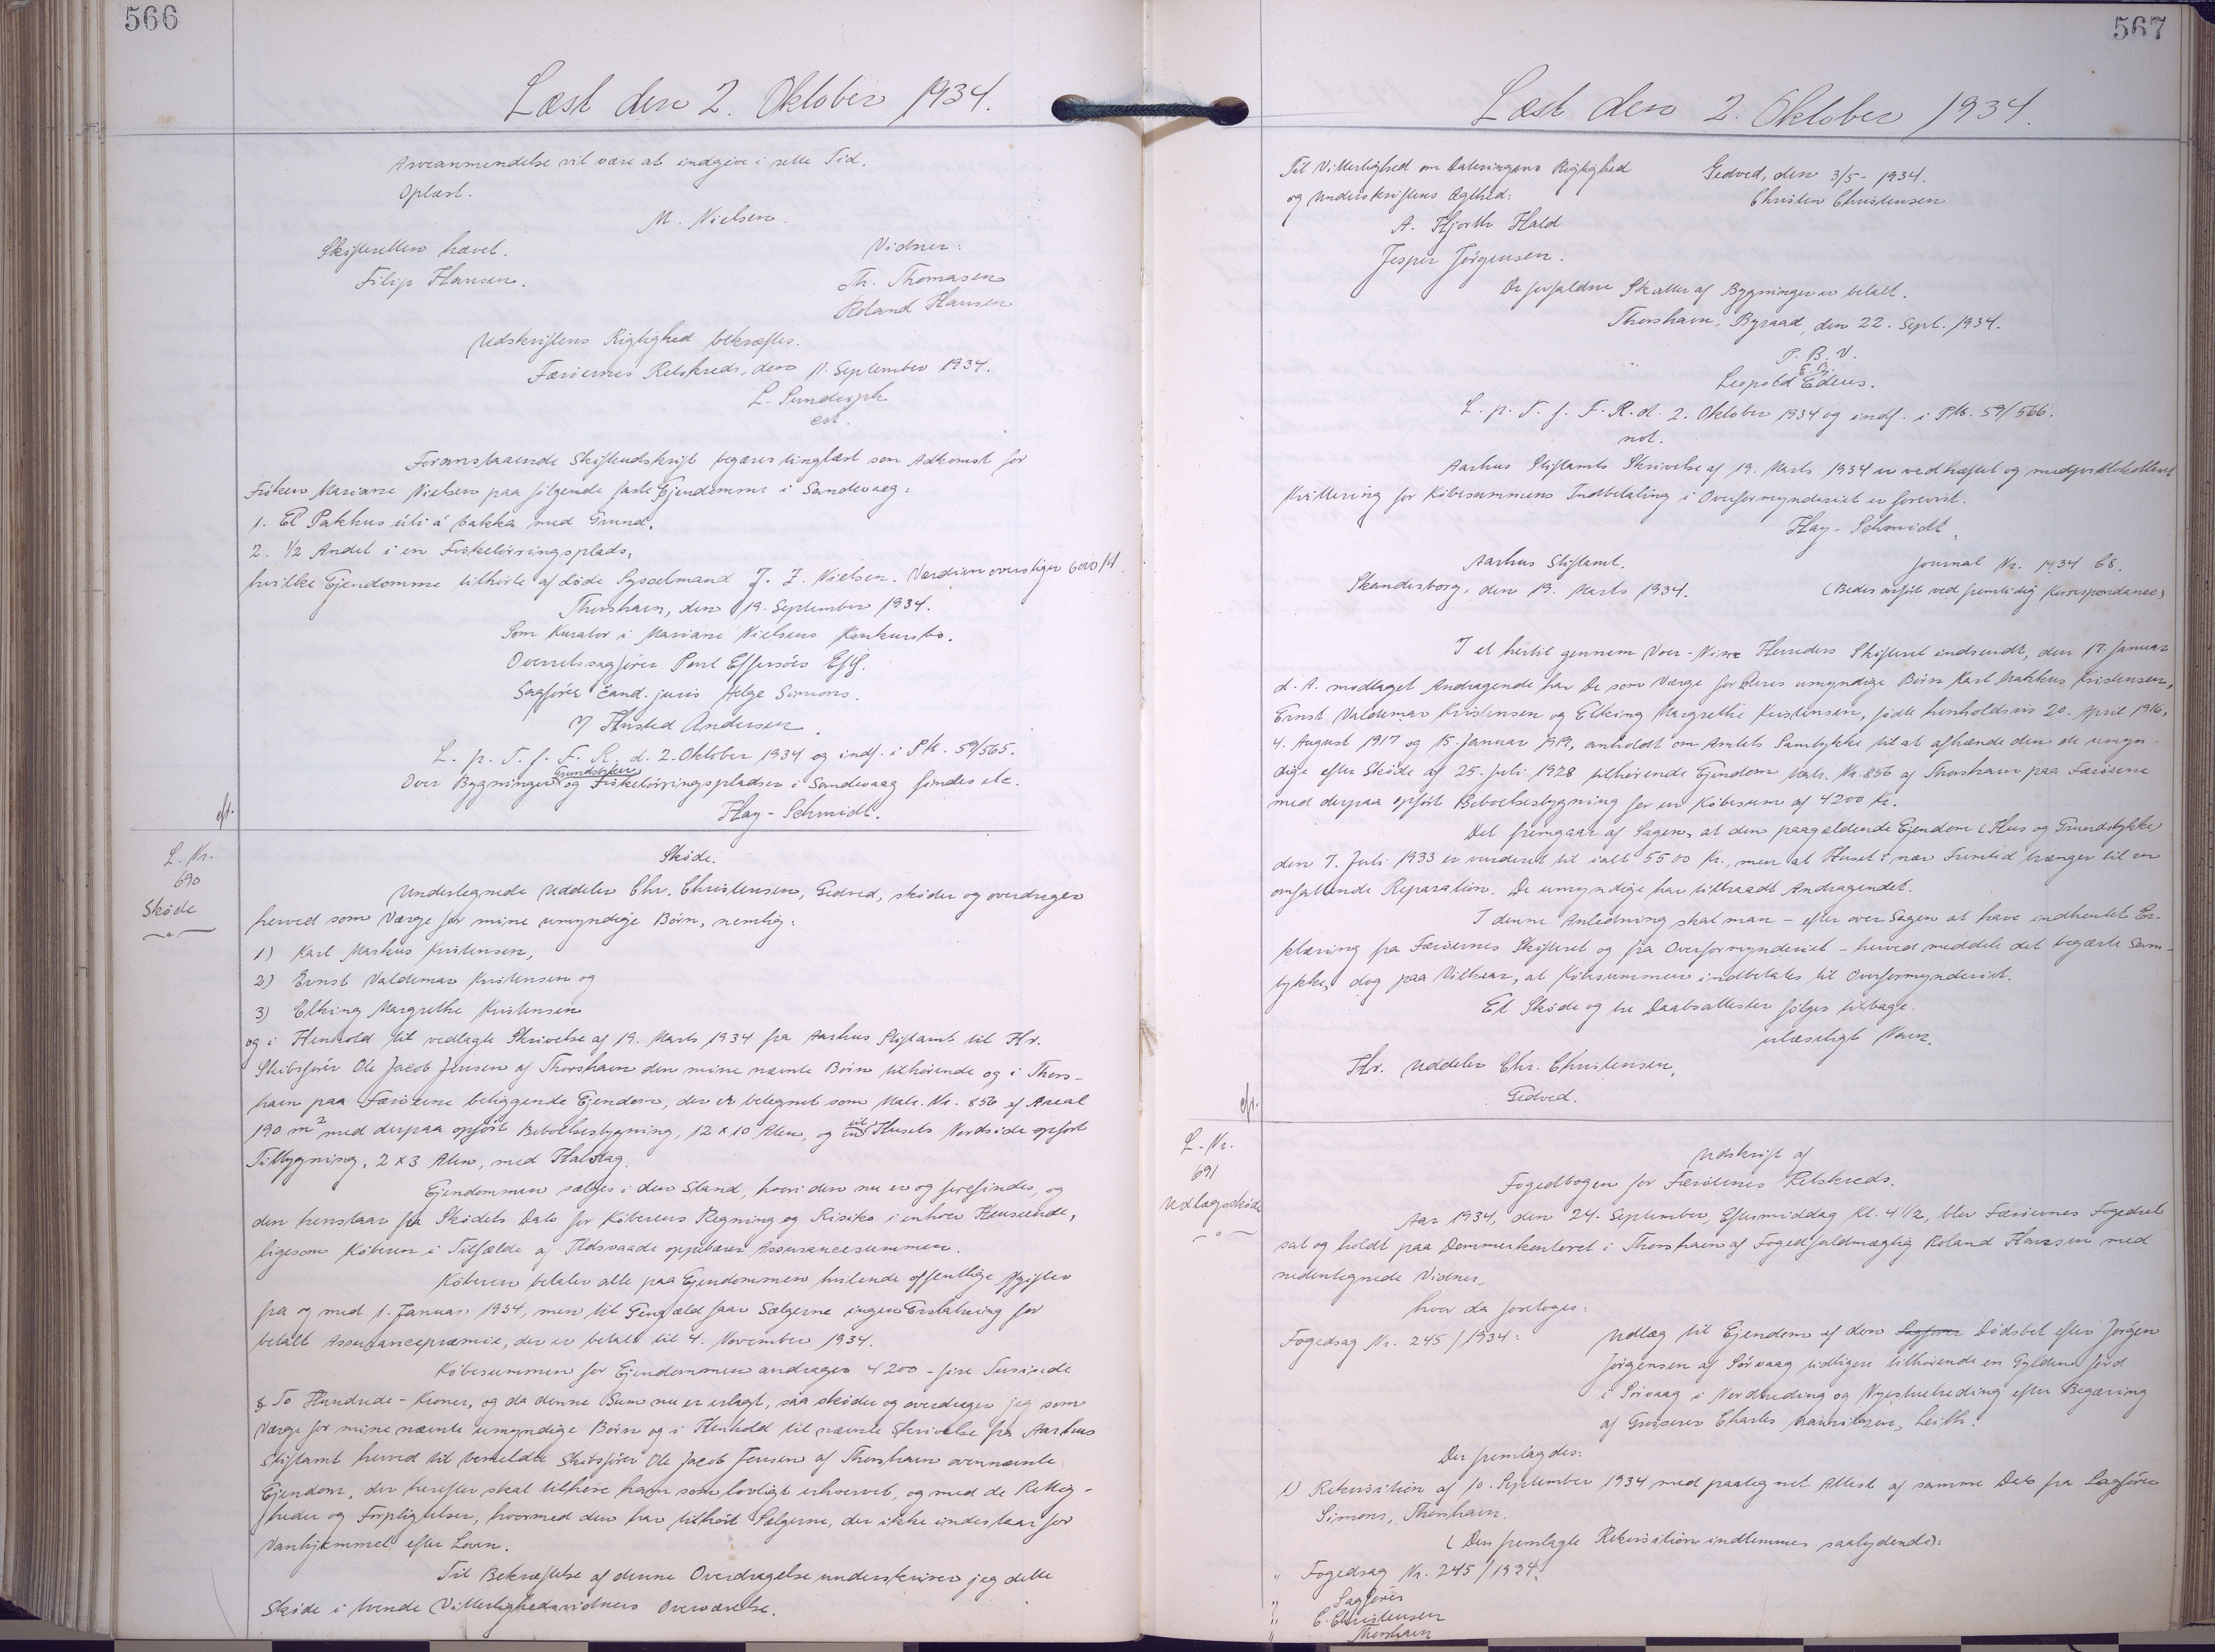 566
Læst den 2. Oktober 1934.
Arveanmendelse vil være at indgive i rette Tid.
Oplæst.
M. Nielsen.
Skifteretten hævet.
Vidner:
Filip Hansen.
Th. Thomasen
Roland Hansen
Udskriftens Rigtighed bekræftes.
Færøernes Retskreds, den 11. September 1934.
L. 
cst.
Foranstaaende Skifteudskrift begæres tinglæst som Adkomst for
Frøken Mariane Nielsen paa følgende faste Ejendomme i Sandevaag:
1. Et Pakhus úti á bakka med Grund,
2. 1/2 Andel i en Fisketørringsplads,
hvilke Ejendomme tilhørte afdøde Sysselmand J. J. Nielsen. Værdien overstiger 6000 Kr.
Thorshavn, den 19. September 1934.
Som Kurator i Mariane Nielsens Konkursbo.
Overretssagfører Poul Effersøes Eftf.
Sagfører Cand. juris Helge Simons.
V/ Husted Andersen.
L. p. T. f. F. R. d. 2. Oktober 1934 og indf. i Pk. 59/565.
Over Bygningen Grundstyker og Fisketørringspladsen i Sandevaag findes etc.
Hay-Schmidt.
cfr.
L. Nr.
690
Skøde
Skøde.
Undertegnede Uddeler Chr. Christensen, Gedved, skøder og overdrager
herved som Værge for mine umyndige Børn, nemlig:
1) Karl Markus Kristensen,
2) Ernst Valdemar Kristensen og
3) Elking Margrethe Kristensen
og i Henhold til vedlagte Skrivelse af 19. Marts 1934 fra Aarhus Stiftamt til Hr.
Skibsfører Ole Jacob Jensen af Thorshavn den mine nævnte Børn tilhørende og i Thors-
havn paa Færøerne beliggende Ejendom, der er betegnet som Matr. Nr. 856 af Areal
190 m² med derpaa opført Beboelsesbygning, 12 x 10 Alen, og en ved Husets Nordside opført
Tilbygning, 2 x 3 Alen, med Halvtag.
Ejendommen sælges i den Stand, hvori den nu er og forefindes, og
den henstaar fra Skødets Dato for Køberens Regning og Risiko i enhver Henseende,
ligesom Køberen i Tilfælde af Ildsvaade oppebærer Assurancesummen.
Køberen betaler alle paa Ejendommen hvilende offentlige Afgifter
fra og med 1. Januar 1934, men til Gengæld faar Sælgerne ingen Erstatning for
betalt Assurancepræmie, der er betalt til 4. November 1934.
Købesummen for Ejendommen andrager 4200 - fire Tusinde
& To Hundrede - Kroner, og da denne Sum nu er erlagt, saa skøder og overdrager jeg som
Værge for mine nævnte umyndige Børn og i Henhold til nævnte Skrivelse fra Aarhus
Stiftamt herved til bemeldte Skibsfører Ole Jacob Jensen af Thorshavn ovennævnte
Ejendom, der herefter skal tilhøre ham som lovligt erhvervet, og med de Rettig-
heder og Forpligtelser, hvormed den har tilhørt Sælgerne, der ikke indestaar for
Vanhjemmel efter Loven.
Til Bekræftelse af denne Overdragelse underskriver jeg dette
Skøde i tvende Vitterlighedsvidners Overværelse.
567
Læst den 2. Oktober 1934.
Til Vitterlighed om Dateringens Rigtighed
og Underskriftens Ægthed:
Gedved, den 3/5 - 1934.
Christen Christensen
A. Hjorth Hald
Jesper Jørgensen.
De forfaldne Skatter af Bygningen er betalt.
Thorshavn, Byraad, den 22. Sept. 1934.
P. B. V.
E. Bj.
Leopold Ederes.
L. p. T. f. F. R. d. 2. Oktober 1934 og indf. i Pk. 59/566.
not.
Aarhus Stiftamts Skrivelse af 19. Marts 1934 er vedhæftet og medprotokolleret
Kvittering for Købesummens Indbetaling i Overformynderiet er forevist.
Hay-Schmidt.
Aarhus Stiftamt.
Journal Nr. 1934 68.
Skanderborg, den 19. Marts 1934.
(Bedes anført ved fremtidig Korrespondance)
I et hertil gennem Voer-Nim Herreders Skifteret indsendt, den 17. Januar
d. A. modtaget Andragende har De som Værge for Deres umyndige Børn Karl Markus Kristensen,
Ernst Valdemar Kristensen og Elking Margrethe Kristensen, fødte henholdsvis 20. April 1916,
4. August 1917 og 15. Januar 1919, anholdt om Amtets Samtykke til at afhænde den de umyn-
dige efter Skøde af 25. Juli 1928 tilhørende Ejendom Matr. Nr. 856 af Thorshavn paa Færøerne
med derpaa opført Beboelsesbygning for en Købesum af 4200 Kr.
Det fremgaar af Sagen, at den paagældende Ejendom (Hus og Grundstykke)
den 7. Juli 1933 er vurderet til ialt 5500 Kr., men at Huset i nær Fremtid trænger til en
omfattende Reparation. De umyndige har tiltraadt Andragendet.
I denne Anledning skal man - efter over Sagen at have indhentet Er-
klæring fra Færøernes Skifteret og fra Overformynderiet - herved meddele det begærte Sam-
tykke, dog paa Vilkaar, at Købesummen indbetales til Overformynderiet.
Et Skøde og tre Daabsattester følger tilbage.
ulæseligt Navn.
Hr. Uddeler Chr. Christensen,
Gedved.
cfr.
L. Nr.
691
Udlægsskøde
Udskrift af
Fogedbogen for Færøernes Retskreds.
Aar 1934, den 24. September, Eftermiddag Kl. 4 1/2, blev Færøernes Fogedret
sat og holdt paa Dommerkontoret i Thorshavn af Fogedfuldmægtig Roland Hansen med
nedentegnede Vidner,
hvor da foretoges:
Fogedsag Nr. 245/1934:
Udlæg til Ejendom af den Sagfører Dødsbet efter Jørgen
Jørgensen af Sørvaag tidligere tilhørende en Gylden Jord
i Sørvaag i Nordreding og Nyestuetreding efter Begæring
af Grosserer Charles Mauritzen, Leith.
Der fremlagdes:
1) Rekvisition af 10. September 1934 med paategnet Attest af samme Dato fra Sagfører
Simons, Thorshavn.
(Den fremlagte Rekvisition indlemmes saalydende):
" Fogedsag Nr. 245/1934.
" Sagfører
" C. Christensen
" Thorshavn